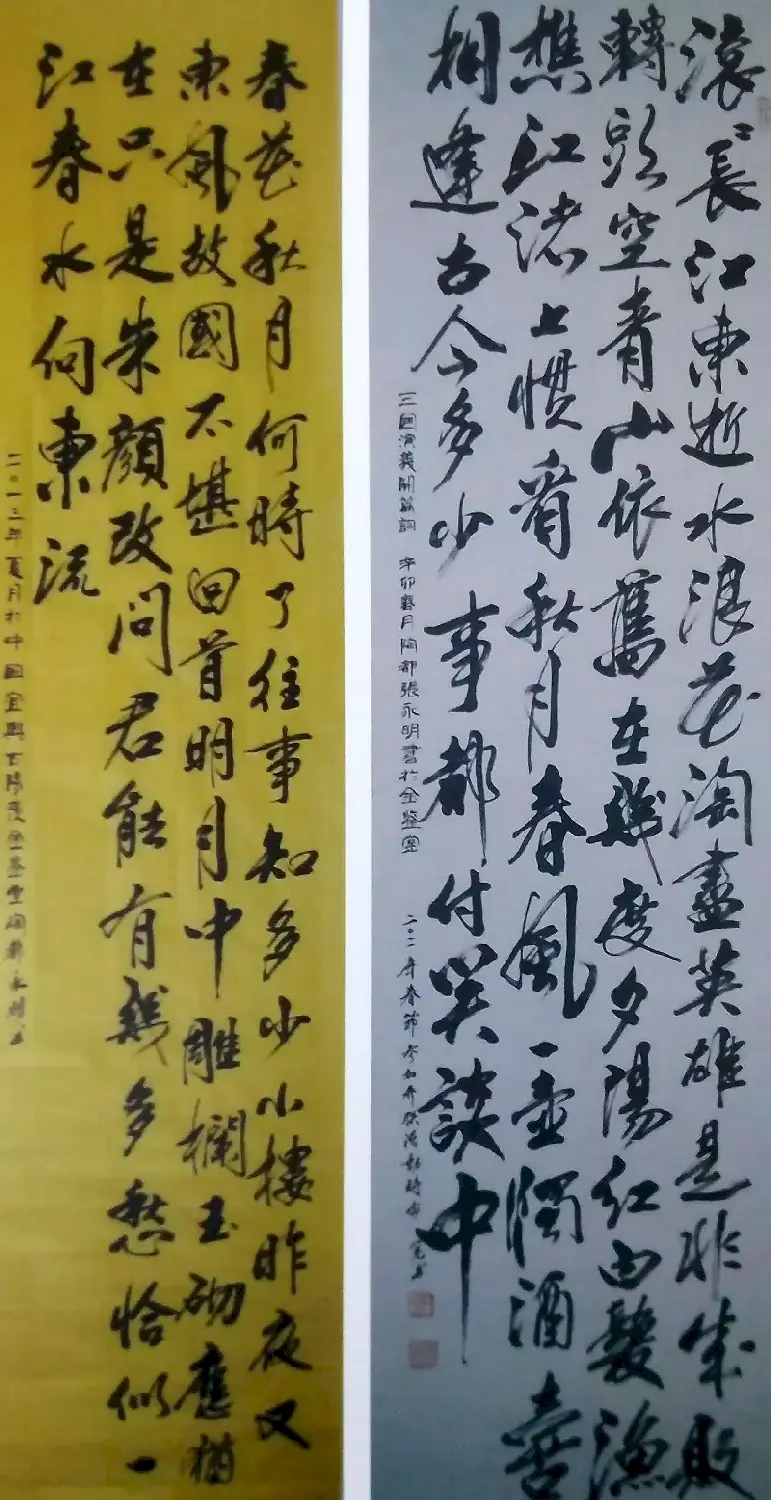 滾〻長江東逝水浪花淘盡英雄是非成敗
轉頭空青山依舊在幾度夕陽紅白髮漁
樵江渚上慣看秋月春風一壺濁酒喜
相逢古今多少事都付笑談中
三國演義開篇詞 辛卯春月陶都張永明書於金鑒堂
二〇一一年春節參加
春花秋月何時了往事知多少小樓昨夜又
東風故國不堪回首明月中雕欄玉砌應猶
在只是朱顏改問君能有幾多愁恰似一
江春水向東流
二〇一三年夏月於中國宜興